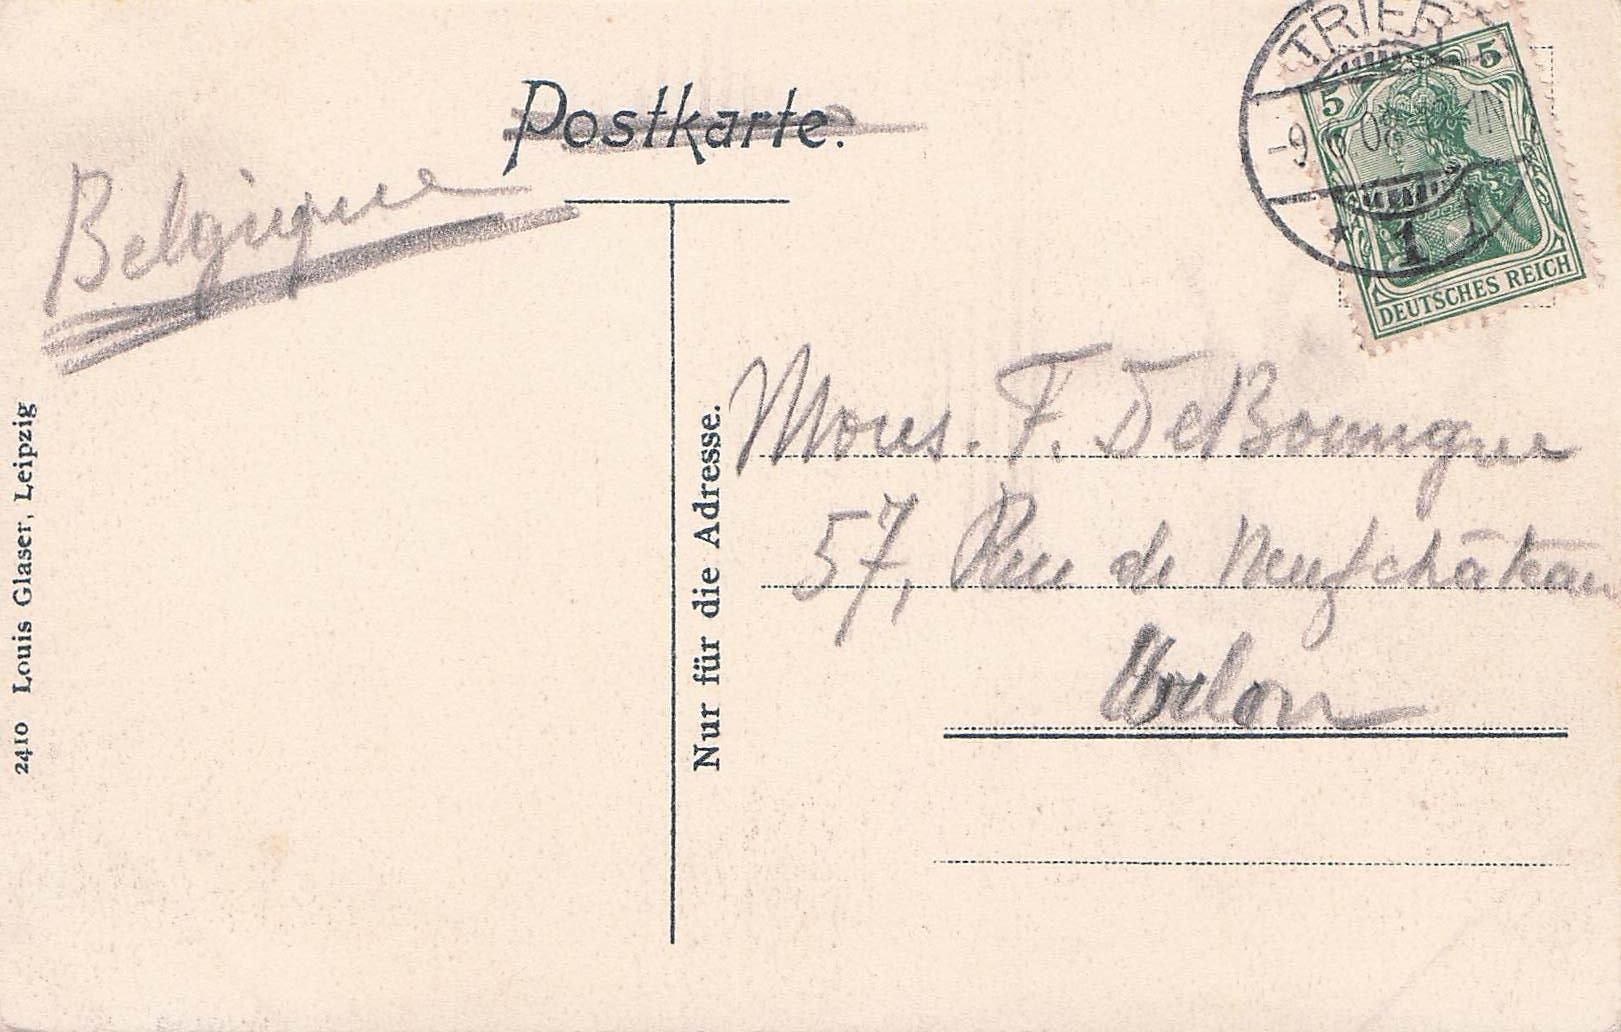 TRIER
5 5
-9. 6 08
1
DEUTSCHES REICH
Postkarte.
Belgique
Mons. F. DeBourngue
57, Rue de Neufchâteau
Arlon
Nur für die Adresse.
2410 Louis Glaser, Leipzig